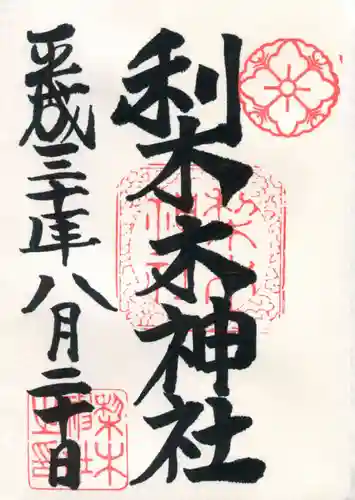 梨木神社
平成三十年八月二十日
梨木
神社
梨木
神社
之印